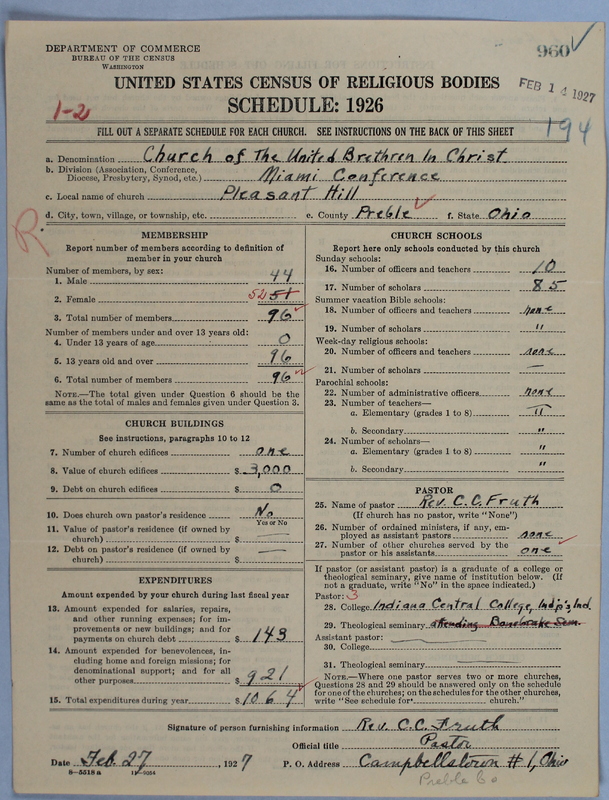 DEPARTMENT OF COMMERCE
BUREAU OF THE CENSUS
WASHINGTON
960
UNITED STATES CENSUS OF RELIGIOUS BODIES
FEB 14 1927
1-2
SCHEDULE: 1926
194
FILL OUT A SEPARATE SCHEDULE FOR EACH CHURCH. SEE INSTRUCTIONS ON THE BACK OF THIS SHEET
a. Denomination Church of The United Brethren In Christ
b. Division (Association, Conference, Diocese, Presbytery, Synod, etc.) Miami Conference
c. Local name of church Pleasant Hill
d. City, town, village, or township, etc. e. County Preble f. State Ohio
R
MEMBERSHIP
Report number of members according to definition of
member in your church
Number of members, by sex:
1. Male 44
2. Female 52 51
3. Total number of members 96
Number of members under and over 13 years old:
4. Under 13 years of age 0
5. 13 years old and over 96
6. Total number of members 96
NOTE.—The total given under Question 6 should be
same as the total of males and females given under Question 3.
CHURCH BUILDINGS
See instructions, paragraphs 10 to 12
7. Number of church edifices one
8. Value of church edifices $ 3,000
9. Debt on church edifices $ 0
10. Does church own pastor's residence No
Yes or No
11. Value of pastor's residence (if owned by
church) $ —
12. Debt on pastor's residence (if owned by
church) $ —
EXPENDITURES
Amount expended by your church during last fiscal year
13. Amount expended for salaries, repairs,
and other running expenses; for im-
provements or new buildings; and for
payments on church debt $ 143
14. Amount expended for benevolences, in-
cluding home and foreign missions; for
denominational support; and for all
other purposes $ 921
15. Total expenditures during year $ 1064
CHURCH SCHOOLS
Report here only schools conducted by this church
Sunday schools:
16. Number of officers and teachers 10
17. Number of scholars 85
Summer vacation Bible schools:
18. Number of officers and teachers none
19. Number of scholars "
Week-day religious schools:
20. Number of officers and teachers none
21. Number of scholars —
Parochial schools:
22. Number of administrative officers none
23. Number of teachers—
a. Elementary (grades 1 to 8) "
b. Secondary "
24. Number of scholars—
a. Elementary (grades 1 to 8) "
b. Secondary "
PASTOR
25. Name of pastor Rev. C.C. Fruth
(If church has no pastor, write "None")
26. Number of ordained ministers, if any, em-
ployed as assistant pastors none
27. Number of other churches served by the
pastor or his assistants one
If pastor (or assistant pastor) is a graduate of a college or
theological seminary, give name of institution below. (If
not a graduate, write "No" in the space indicated.)
Pastor: 3
28. College Indiana Central College, Ind'p's, Ind.
29. Theological seminary attending Bonebrake Sem.
Assistant pastor:
30. College
31. Theological seminary
NOTE.—Where one pastor serves two or more churches,
Questions 28 and 29 should be answered only on the schedule
for one of the churches; on the schedules for the other churches,
write "See schedule for church."
Signature of person furnishing information Rev. C.C. Fruth
Official title Pastor
Date Feb. 27, 1927 P. O. Address Campbellstown # 1, Ohio
8—5518 a 11—9064
Preble Co